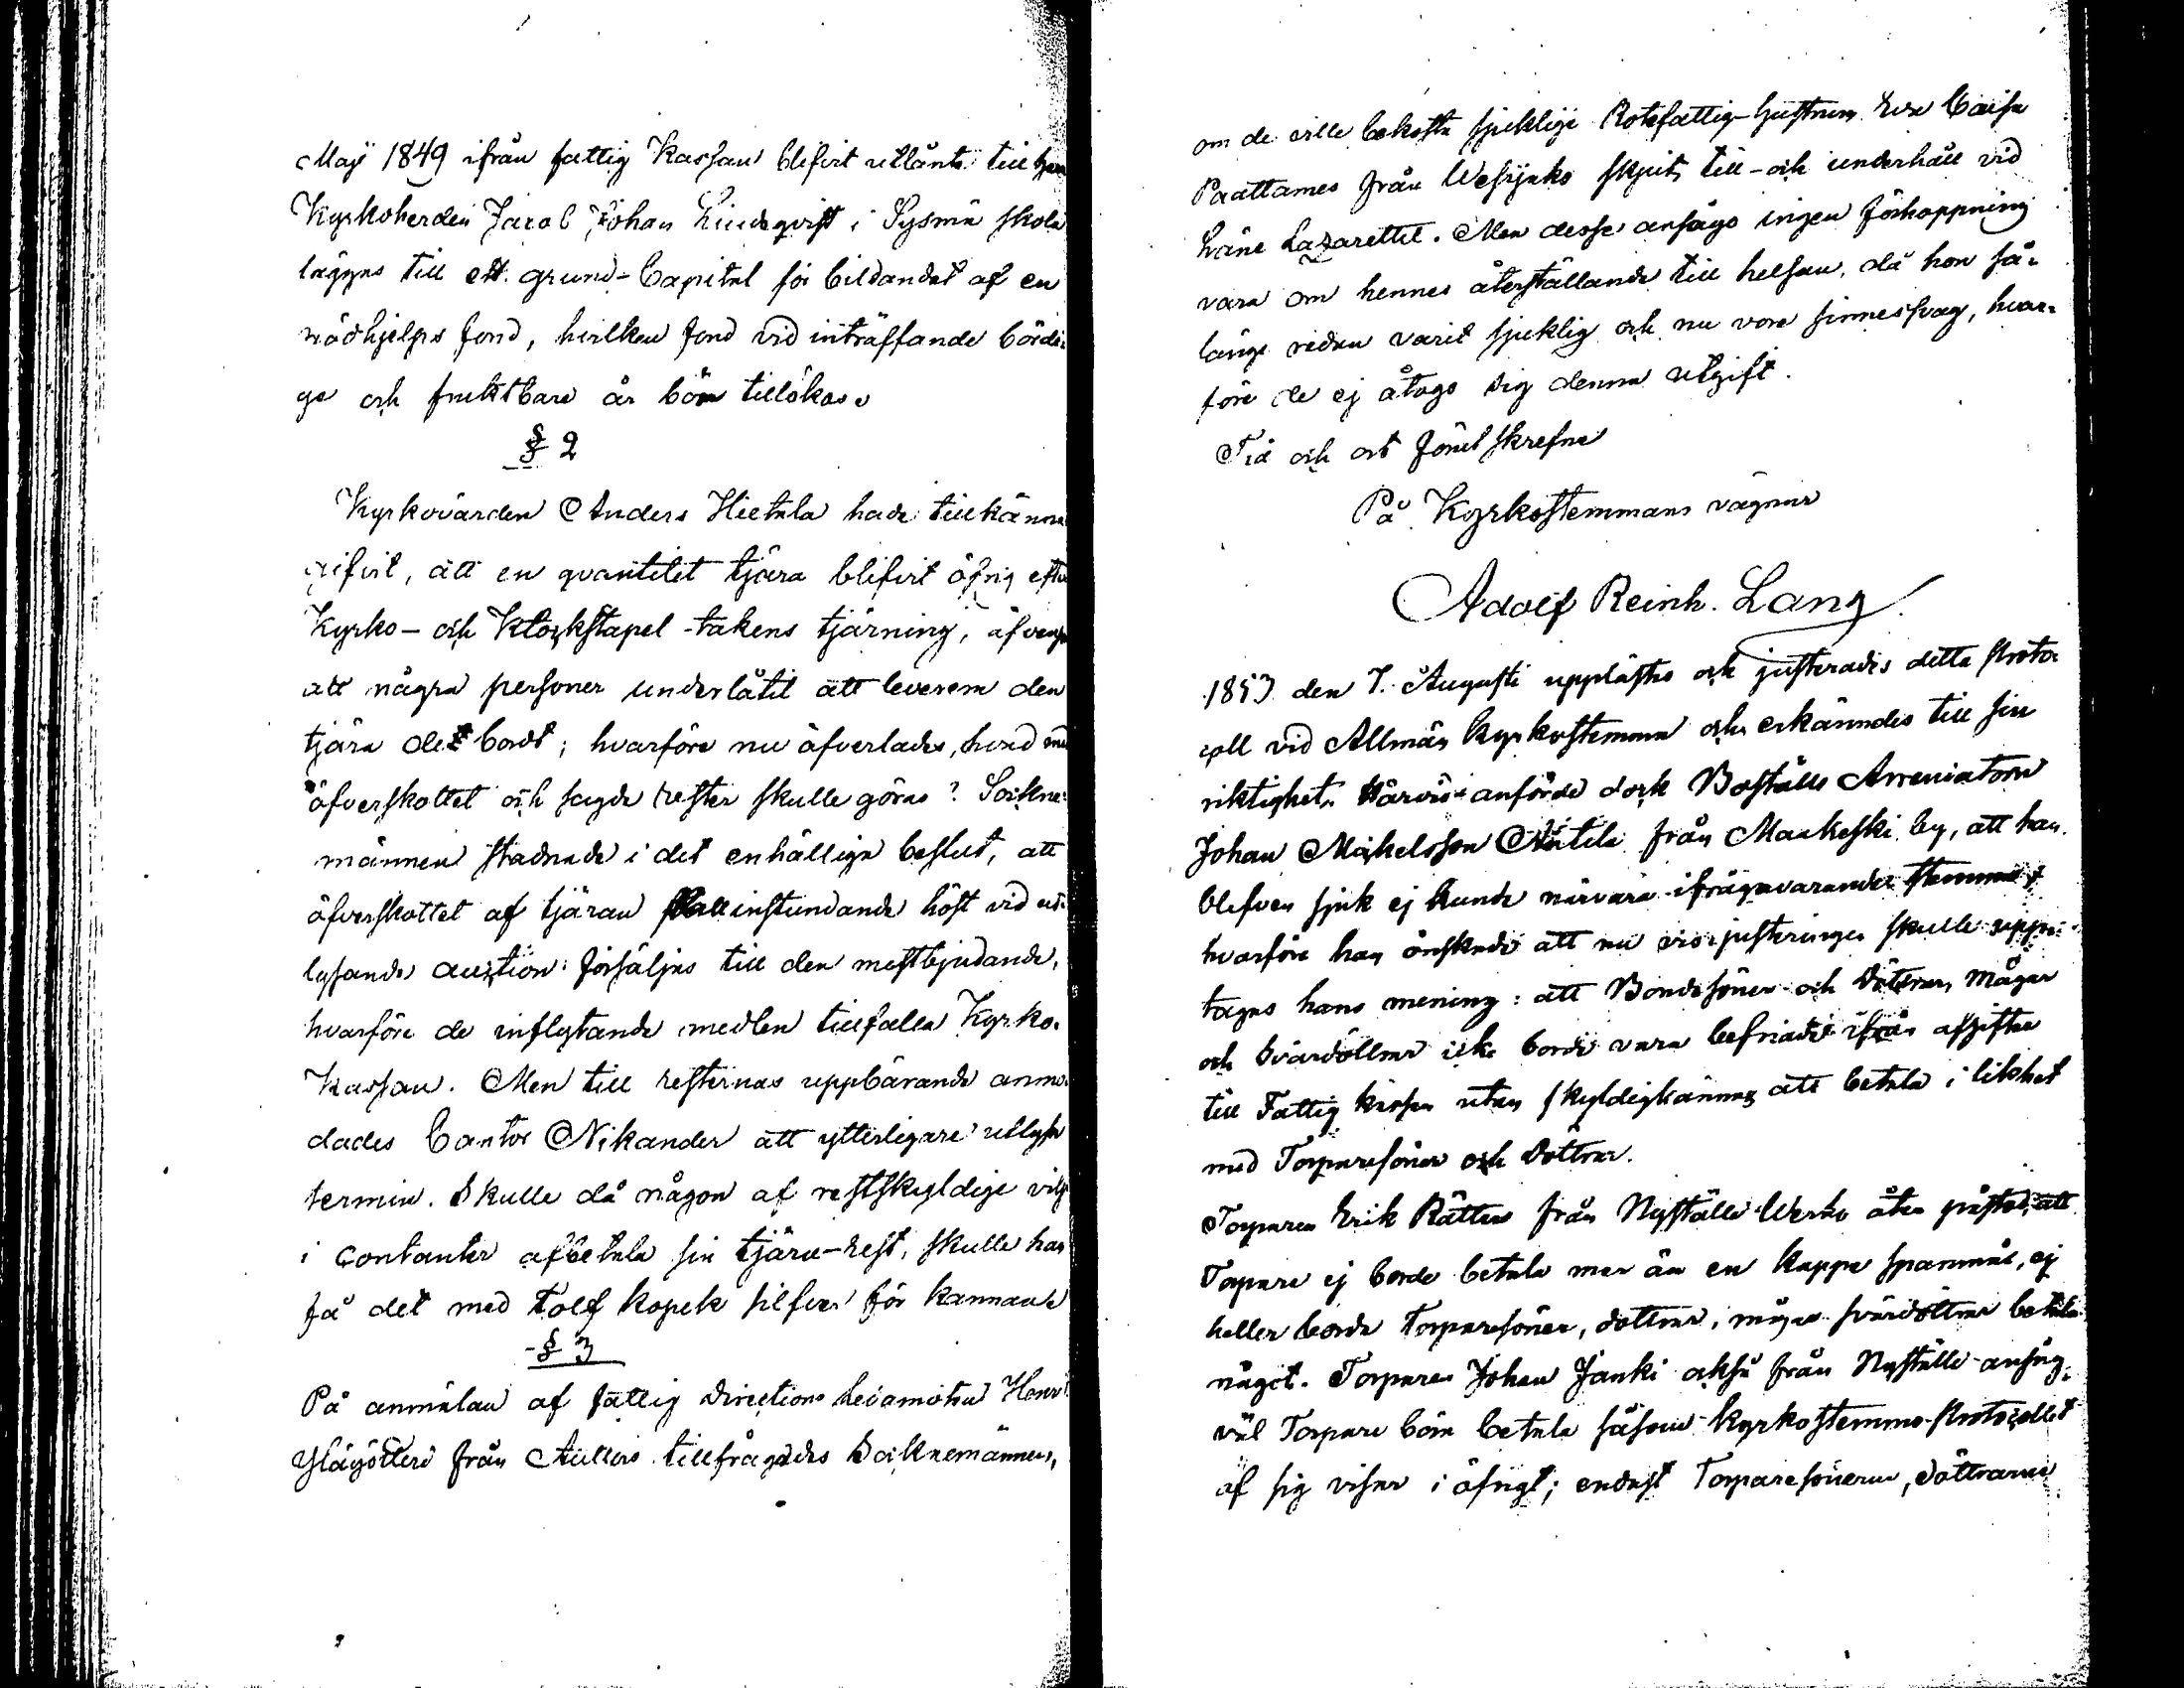 Maji 1849 ifrån fattig Kassan blifvit utlånte till
Kyrkoherden Jacob Johan Lindeqvist i Sysmä skola
läggas till ett grund-Capital för bildandet af en
nödhjelps fond, hvilken fond vid inträffande bördi-
ga och fruktbara år bör tillökas.
§ 2
Kyrkovärden Anders Hietala hade tillkänna
gifvit, att en qvantitet tjära blifvit öfrig efter
Kyrko- och Klockstapel-takens tjärning, äfvensom
att några personer underlåtit att leverera den
tjära de bordt; hvarföre nu öfverlades, hvad med
öfverskottet och sagde rester skulle göras? Sockne-
männen stadnade i det enhälliga beslut, att
öfverskottet af tjäran skall instundande höst vid ut-
lysande auction försäljas till den mestbjudande,
hvarföre de inflytande medlen tillfalla Kyrko-
Kassan. Men till resternas uppbärande anmo-
dades Cantor Nikander att ytterligare utlysa
termin. Skulle då någon af restskyldige vilja
i contanter afbetala sin tjäru-rest, skulle han
få det med tolf kopek silfver för kannan.
§ 3
På anmälan af fattig Directions Ledamoten Henr.
Yläjötteri från Aullars tillfrågades Socknemännen,
om de ville bekosta sjuklige Rotefattig-hustrun Eva Caisa
Paattames från Wesijako skjuts till- och underhåll vid
Läne Lazarettet. Men desse ansågo ingen förhoppning
vara om hennes återställande till helsan, då hon så
länge redan varit sjuklig och nu vore sinnessvag, hvar-
före de ej åtogo sig denna utgift.
Tid och ort förutskrefne
På Kyrkostemmans vägnar
Adolf Reinh. Lang
1853 den 7. Augusti upplästes och justerades detta Proto-
coll vid Allmän Kyrkostemma och erkänndes till sin
riktighet. Härvid anförde dock Boställs Arrendatorn
Johan Mickelsson Antila från Maakeski by, att han
blefven sjuk ej kunde närvara ifrågavarande stemma,
hvarföre han önskade att nu vid justeringen skulle upp-
tagas hans mening: att Bondesöner och Döttrar, Mågar
och Svärdöttrar icke borde vara befriade ifrån afgifter
till Fattig kassan utan skyldigkännas att betala i likhet
med Torparesöner och Döttrar.
Torparen Erik Rätter från Nyställe Werho åter påstod, att
Torpare ej borde betala mer än en kappe spannmål, ej
heller borde Torparesöner, döttrar, mågar svärdöttrar betala
något. Torparen Johan Janki också från Nyställe ansåg,
väl Torpare böra betala såsom Kyrkostemmo-Protocollet
af sig visar i öfrigt; endast Torparesönerne, döttrarne